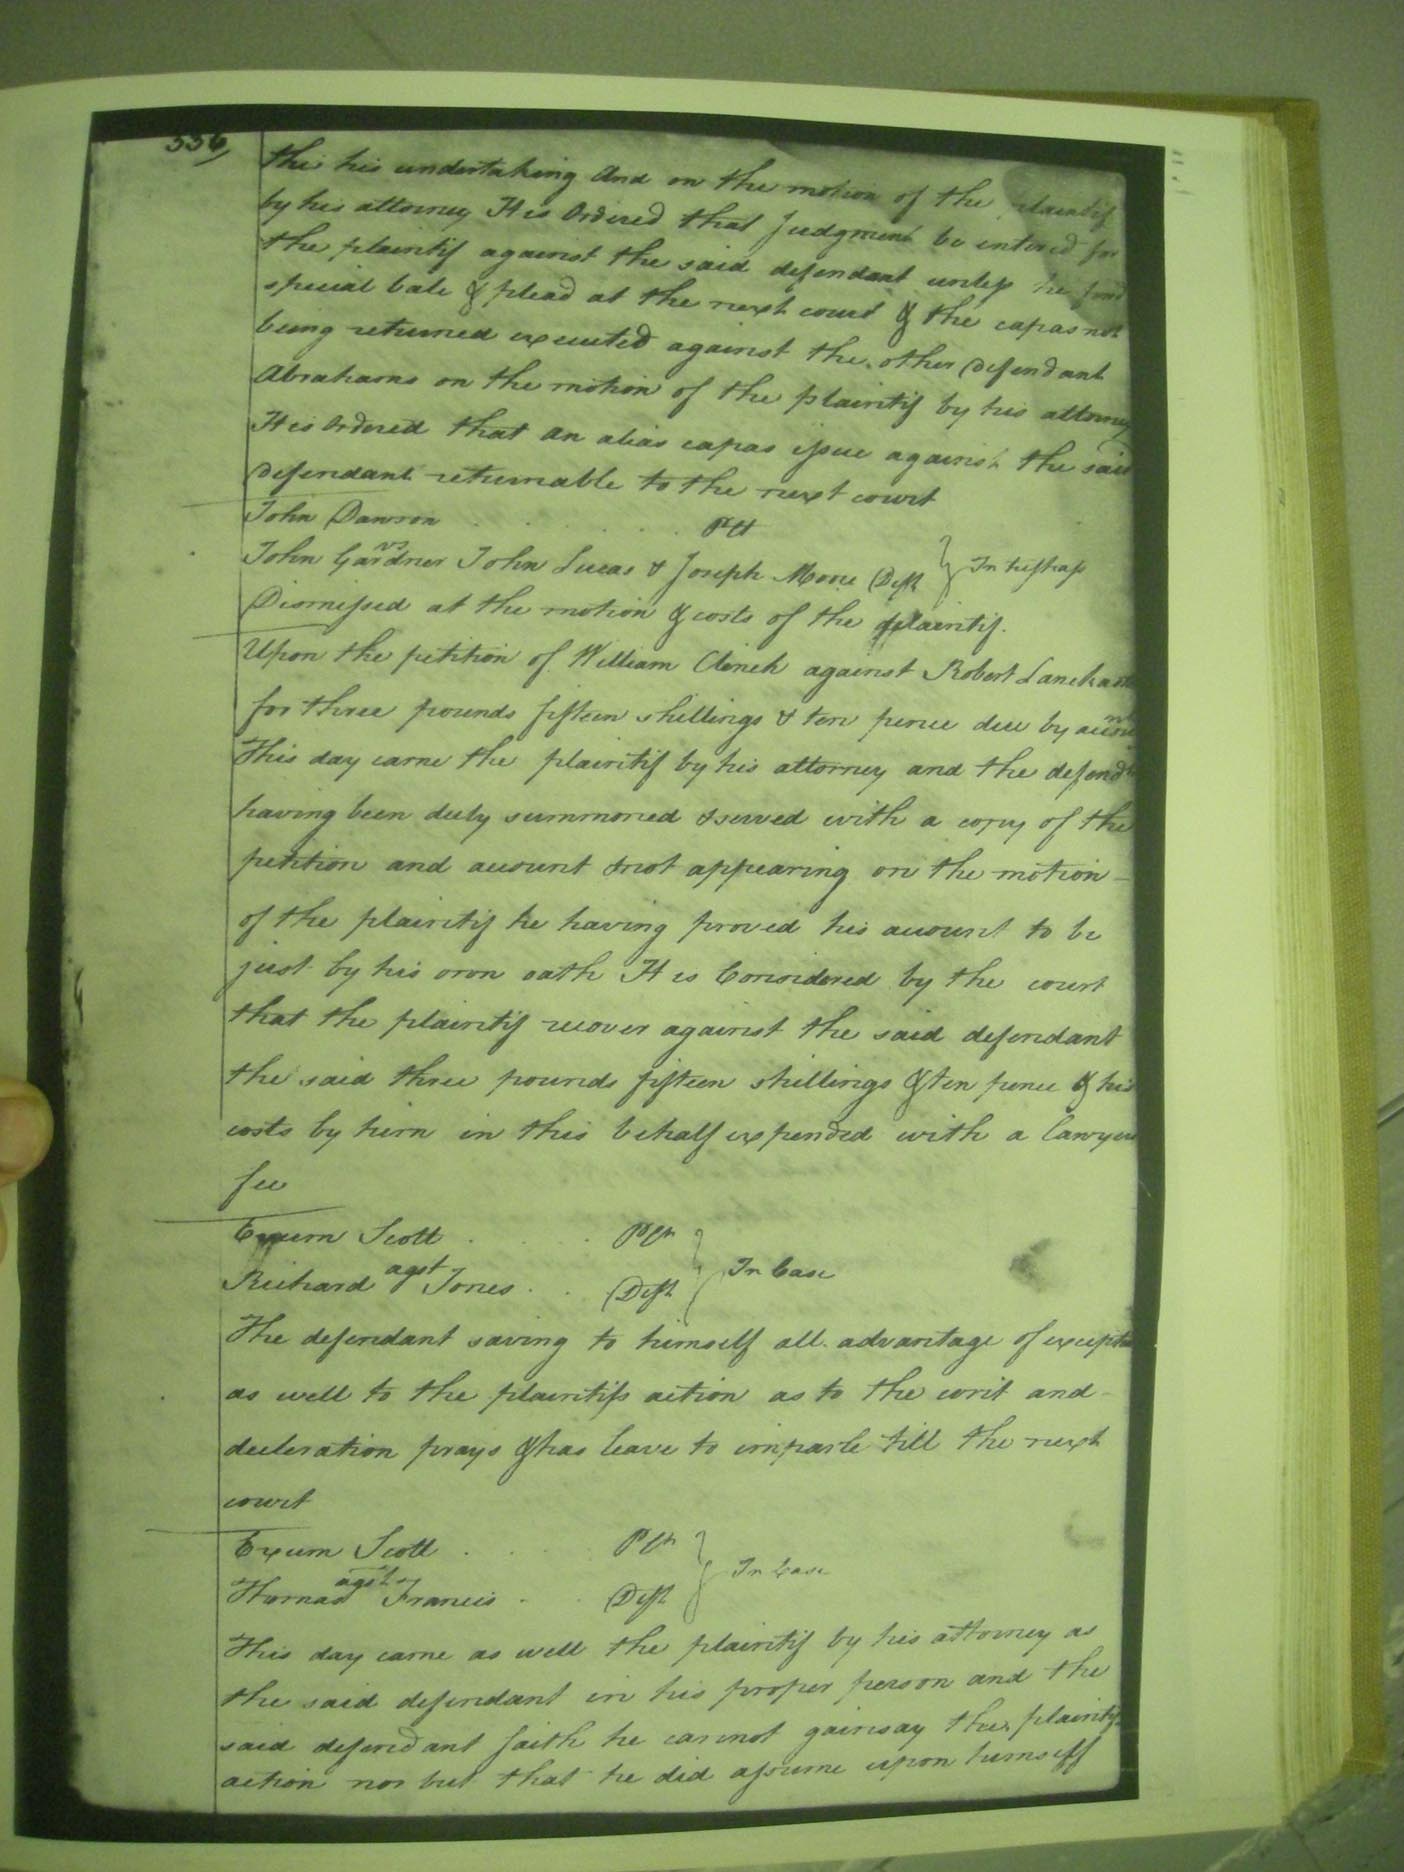 336
this his undertaking And on the motion of the plaintif
by his attorney It is Ordered that Judgment be entered for
the plaintif against the said defendant unless he find
special bale & plead at the next court & the capas not
being returned executed against the other Defendant
Abrahams on the motion of the plaintif by his attorney
It is Ordered that an alias capas issue against the said
Defendant returnable to the next court
John Dawson . . . . . . Plt
vs
John Gardner John Lucas & Joseph Moore Deft } In trespass
Dismissed at the motion & costs of the plaintif.
Upon the petition of William Clinch against Robert Lanckaster
for three pounds fifteen shillings & ten pence due by account
This day came the plaintif by his attorney and the defendt
having been duly summoned & served with a copy of the
petition and account & not appearing on the motion
of the plaintif he having proved his account to be
just by his own oath It is Considered by the court
that the plaintif recover against the said defendant
the said three pounds fifteen shillings & ten pence & his
costs by him in this behalf expended with a lawyers
fee
Exum Scott . . . Plt
agst } In Case
Richard Jones . . Deft
The defendant saving to himself all advantage of exception
as well to the plaintifs action as to the writ and
decleration prays & has leave to imparle till the next
court
Exum Scott . . . Plt
agst } In Case
Thomas Francis . . Deft
This day came as well the plaintif by his attorney as
the said defendant in his proper person and the
said defendant saith he cannot gainsay the plaintifs
action nor but that he did assume upon himself